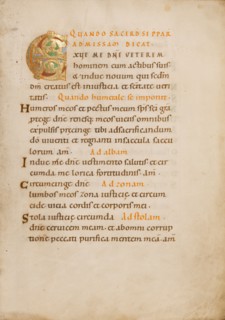 QUANDO SACERDS PPARA
AD MISSAM DICAT
XUE ME DNE VETEREM
hominem cum actibus suis
& indue novum qui scdm
dm creatus est in iusticia & scitate veri
tatis· Quando humerale se imponit·
Humeros meos et pectus meum sps sci gra
protege dne renisq; meos viciis omnibus
expulsis precinge tibi ad sacrificandum
do viventi et regnanti in scla secu
lorum am· Ad albam
Indue me dne vestimento salutis et cir
cunda me lorica fortitudinis· am·
Circumcinge dne Ad zonam
lumbos meos zona iusticiȩ et circum
cide vicia cordis et corporis mei·
Stola iusticiȩ circumda Ad stolam
dne cervicem meam et ab omni corrup
tione peccati purifica mentem meā· am·